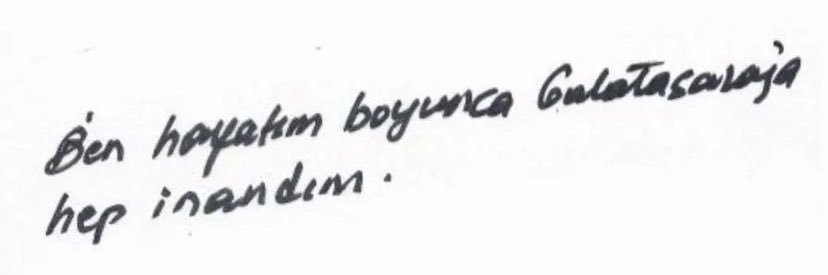 Ben hayatım boyunca Galatasaraya
hep inandım.